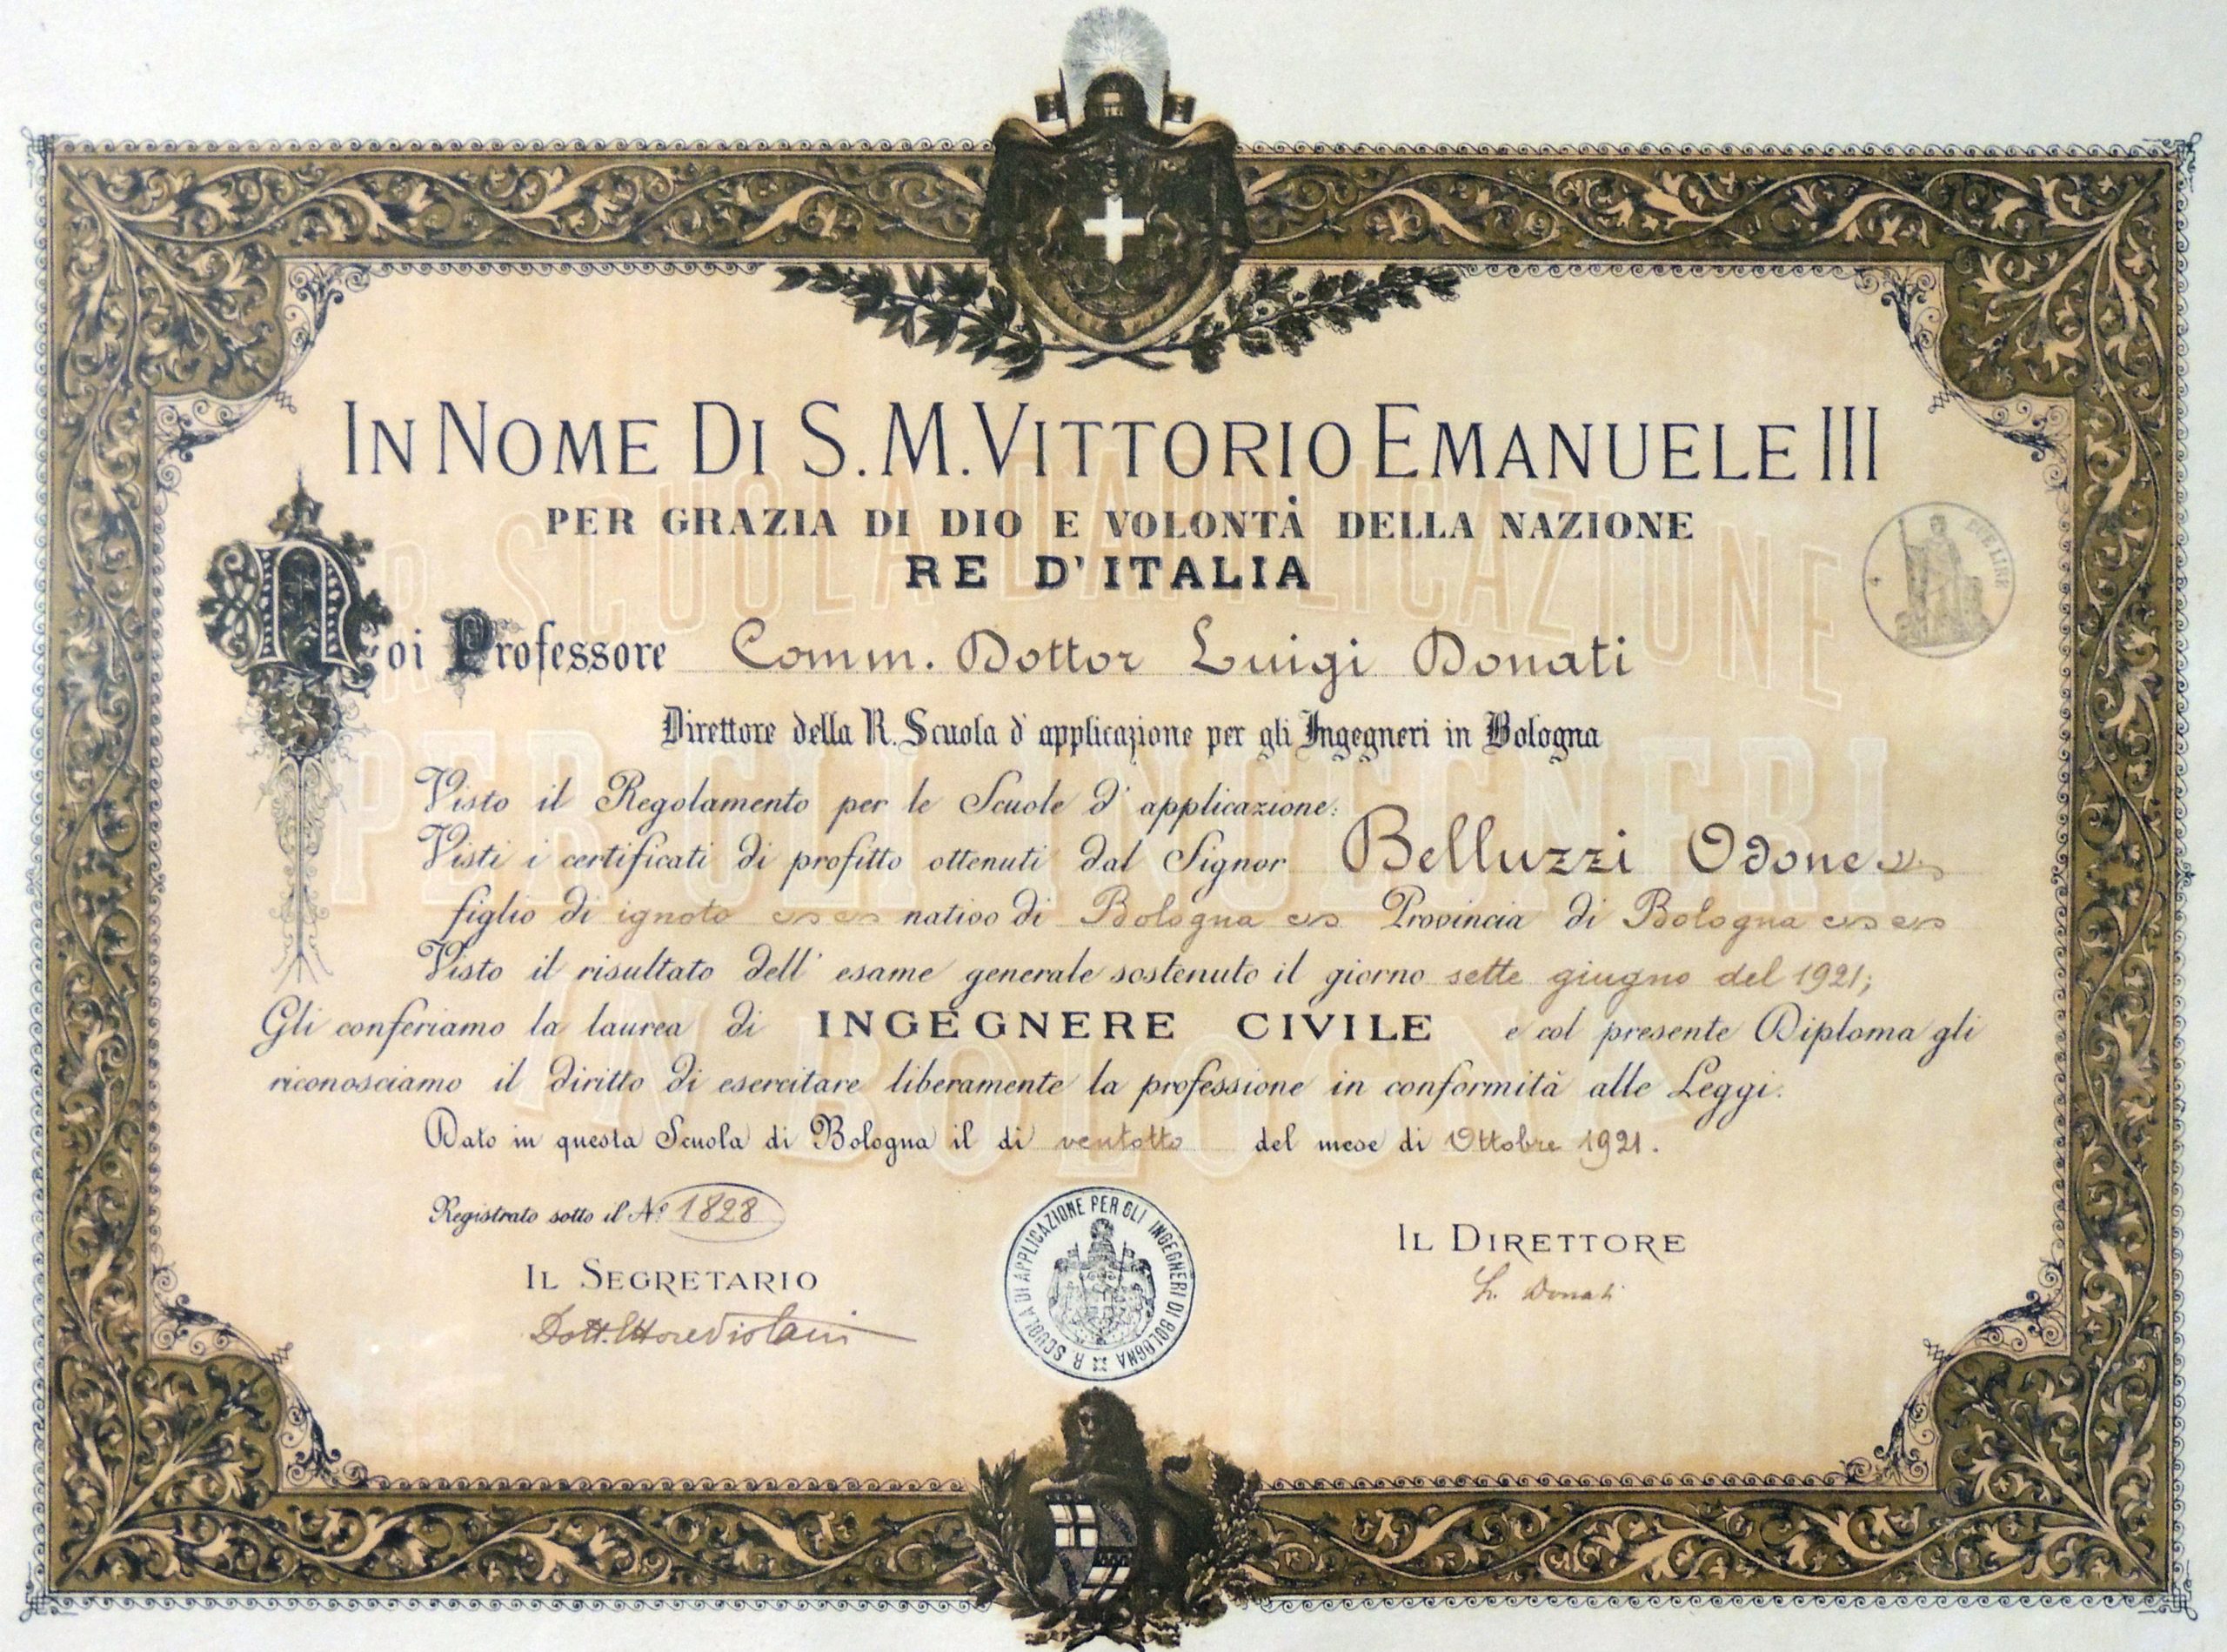 IN NOME DI S.M. VITTORIO EMANUELE III
PER GRAZIA DI DIO E VOLONTÀ DELLA NAZIONE
RE D'ITALIA
Noi Professore Comm. Dottor Luigi Donati
Direttore della R. Scuola d'applicazione per gli Ingegneri in Bologna
Visto il Regolamento per le Scuole d'applicazione:
Visti i certificati di profitto ottenuti dal Signor Belluzzi Odone
figlio di ignoto nativo di Bologna Provincia di Bologna
Visto il risultato dell'esame generale sostenuto il giorno sette giugno del 1921;
Gli conferiamo la laurea di INGEGNERE CIVILE e col presente Diploma gli
riconosciamo il diritto di esercitare liberamente la professione in conformità alle Leggi.
Dato in questa Scuola di Bologna il dì ventotto del mese di Ottobre 1921.
Registrato sotto il No 1828
IL SEGRETARIO
Dott. Ettore
IL DIRETTORE
L. Donati
R. SCUOLA DI APPLICAZIONE PER GLI INGEGNERI DI BOLOGNA
R. SCUOLA D'APPLICAZIONE
PER GLI INGEGNERI
IN BOLOGNA
DUE LIRE